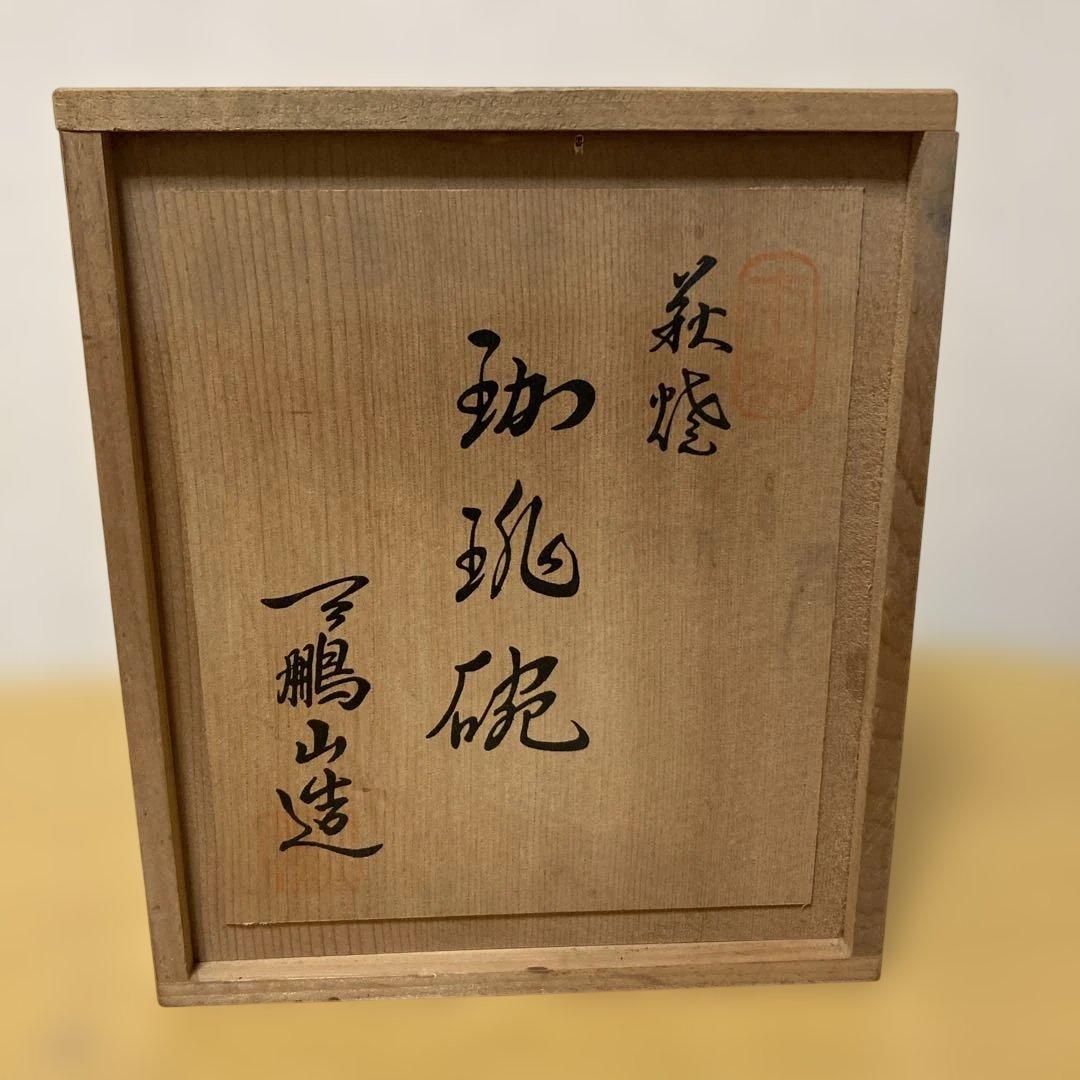 萩焼
珈琲碗
天鵬山造